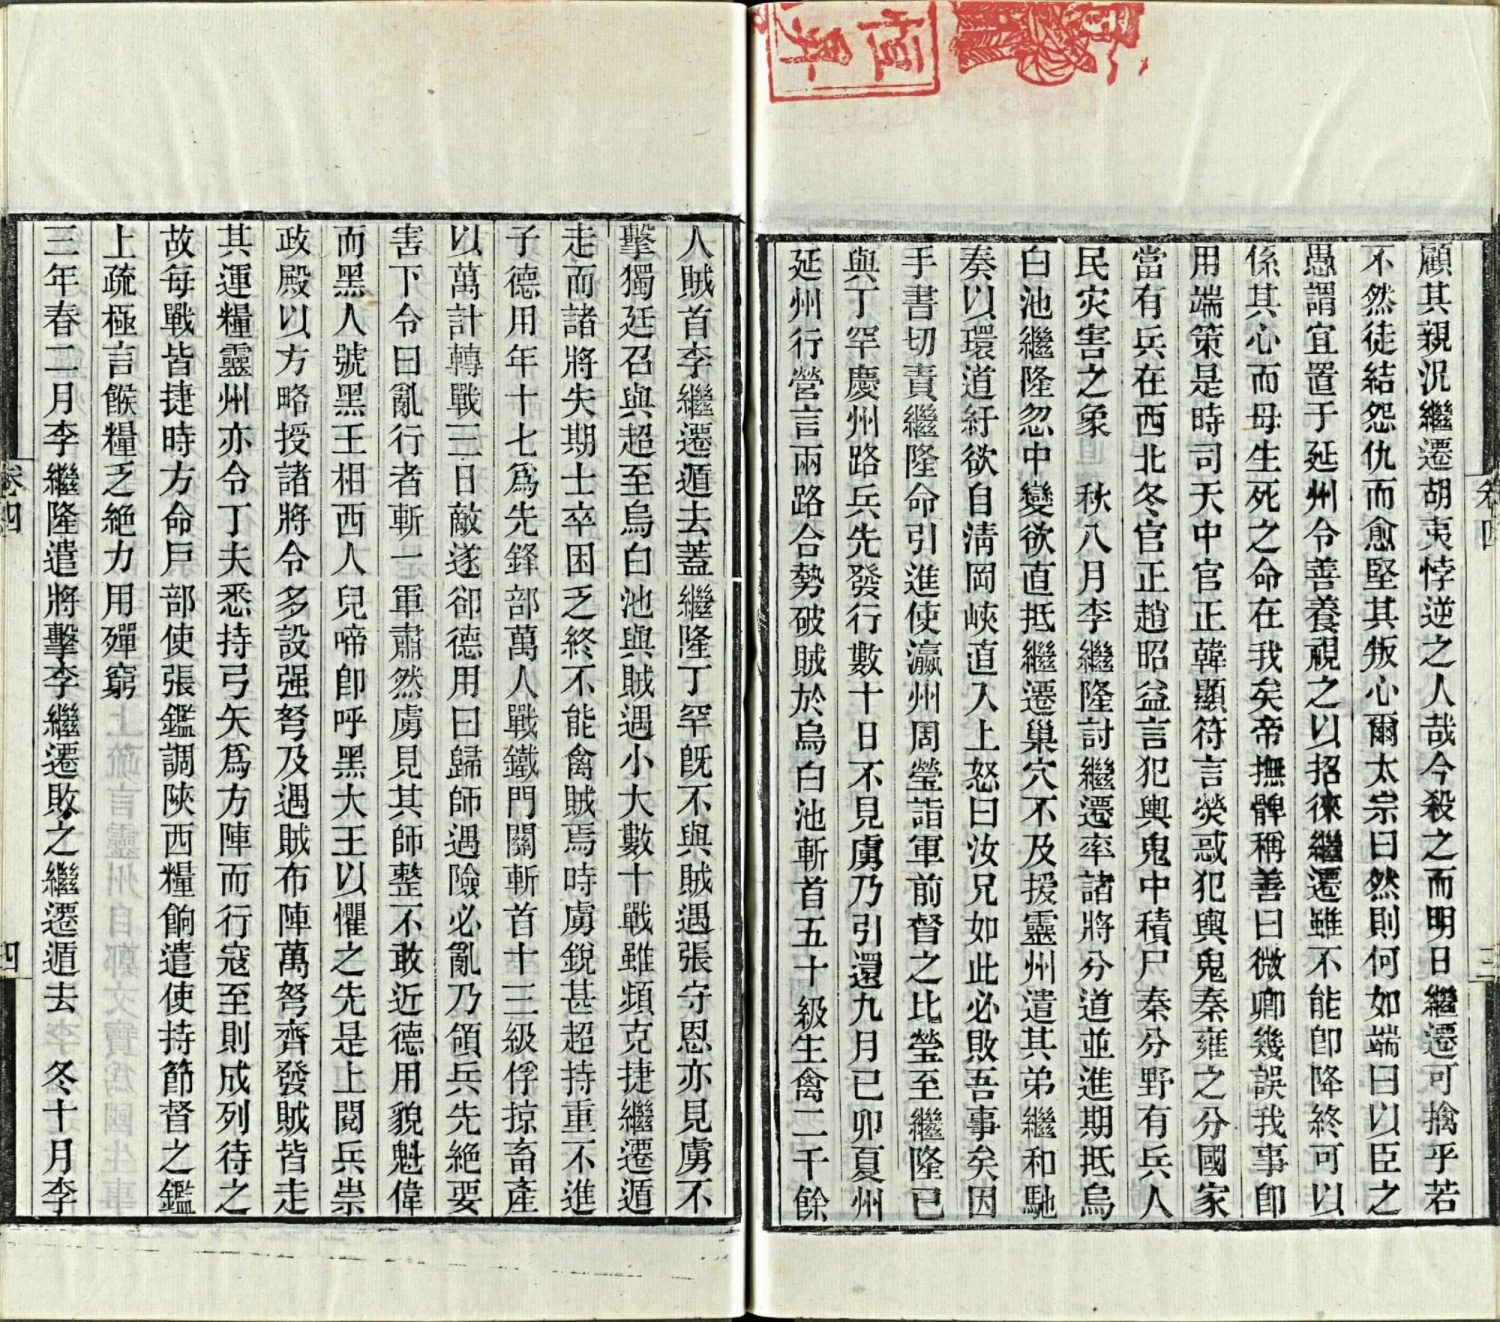 顧其親況繼遷胡夷悖逆之人哉今殺之而明日繼遷可擒乎若
不然徒結怨仇而愈堅其叛心爾太宗曰然則何如端曰以臣之
愚謂宜置于延州令善養視之以招徠繼遷雖不能卽降終可以
係其心而母生死之命在我矣帝撫髀稱善曰微卿幾誤我事卽
用端策是時司天中官正韓顯符言熒惑犯輿鬼秦雍之分國家
當有兵在西北冬官正趙昭益言犯輿鬼中積尸秦分野有兵人
民灾害之象　秋八月李繼隆討繼遷率諸將分道並進期抵烏
白池繼隆忽中變欲直抵繼遷巢穴不及援靈州遣其弟繼和馳
奏以環道紆欲自淸岡峽直入上怒曰汝兄如此必敗吾事矣因
手書切責繼隆命引進使瀛州周瑩詣軍前督之比瑩至繼隆已
與丁罕慶州路兵先發行數十日不見虜乃引還九月己卯夏州
延州行營言兩路合勢破賊於烏白池斬首五十級生禽二千餘
人賊首李繼遷遁去蓋繼隆丁罕旣不與賊遇張守恩亦見虜不
擊獨廷召與超至烏白池與賊遇小大數十戰雖頻克捷繼遷遁
走而諸將失期士卒困乏終不能禽賊焉時虜銳甚超持重不進
子德用年十七爲先鋒部萬人戰鐵門關斬首十三級俘掠畜產
以萬計轉戰三日敵遂卻德用曰歸師遇險必亂乃領兵先絕要
害下令曰亂行者斬一軍肅然虜見其師整不敢近德用貌魁偉
而黑人號黑王相西人兒啼卽呼黑大王以懼之先是上閱兵崇
政殿以方略授諸將令多設强弩及遇賊布陣萬弩齊發賊皆走
其運糧靈州亦令丁夫悉持弓矢爲方陣而行寇至則成列待之
故每戰皆捷時方命戶部使張鑑調陝西糧餉遣使持節督之鑑
上疏極言餱糧乏絕力用殫窮
三年春二月李繼隆遣將擊李繼遷敗之繼遷遁去　冬十月李
卷四
四